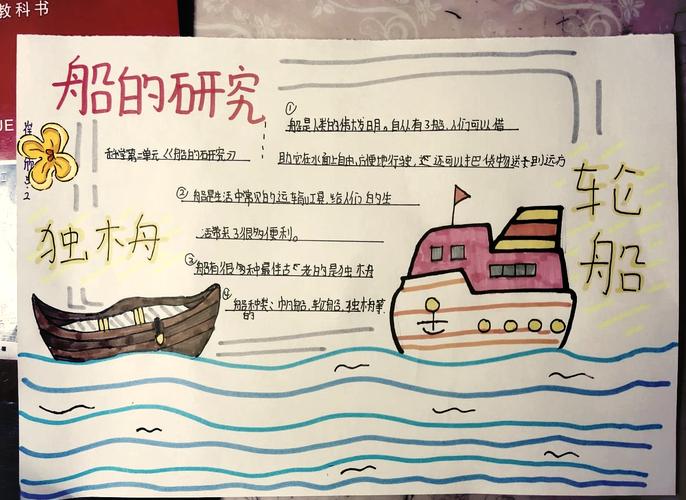 教科书
船的研究
科学第二单元《船的研究》
①
船是人类的伟大发明。自从有了船,人们可以借
助它在水面上自由、方便地行驶,还可以把货物送到远方
②船是生活中常见的运输工具,给人们的生
活带来了很多便利。
③船有很多种最佳古老的是独木舟
④船的种类:帆船,轮船,独木舟等
独木舟
轮船